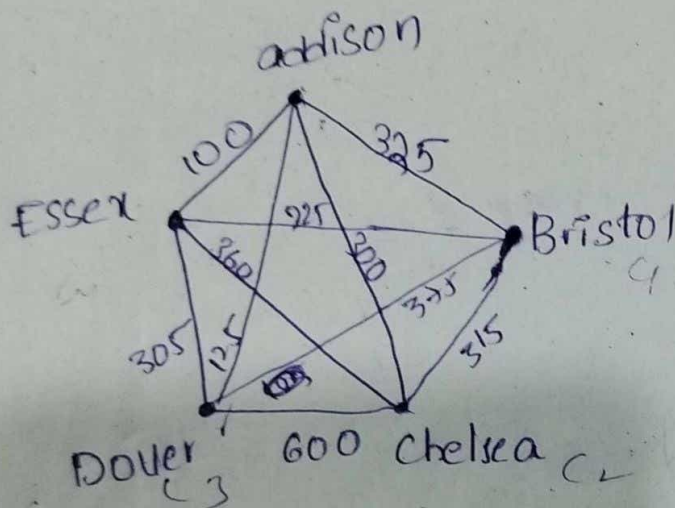 addison
100
325
Essex
225
Bristol
360
200
375
305
125
315
Dover
600
Chelsea
C3
C2